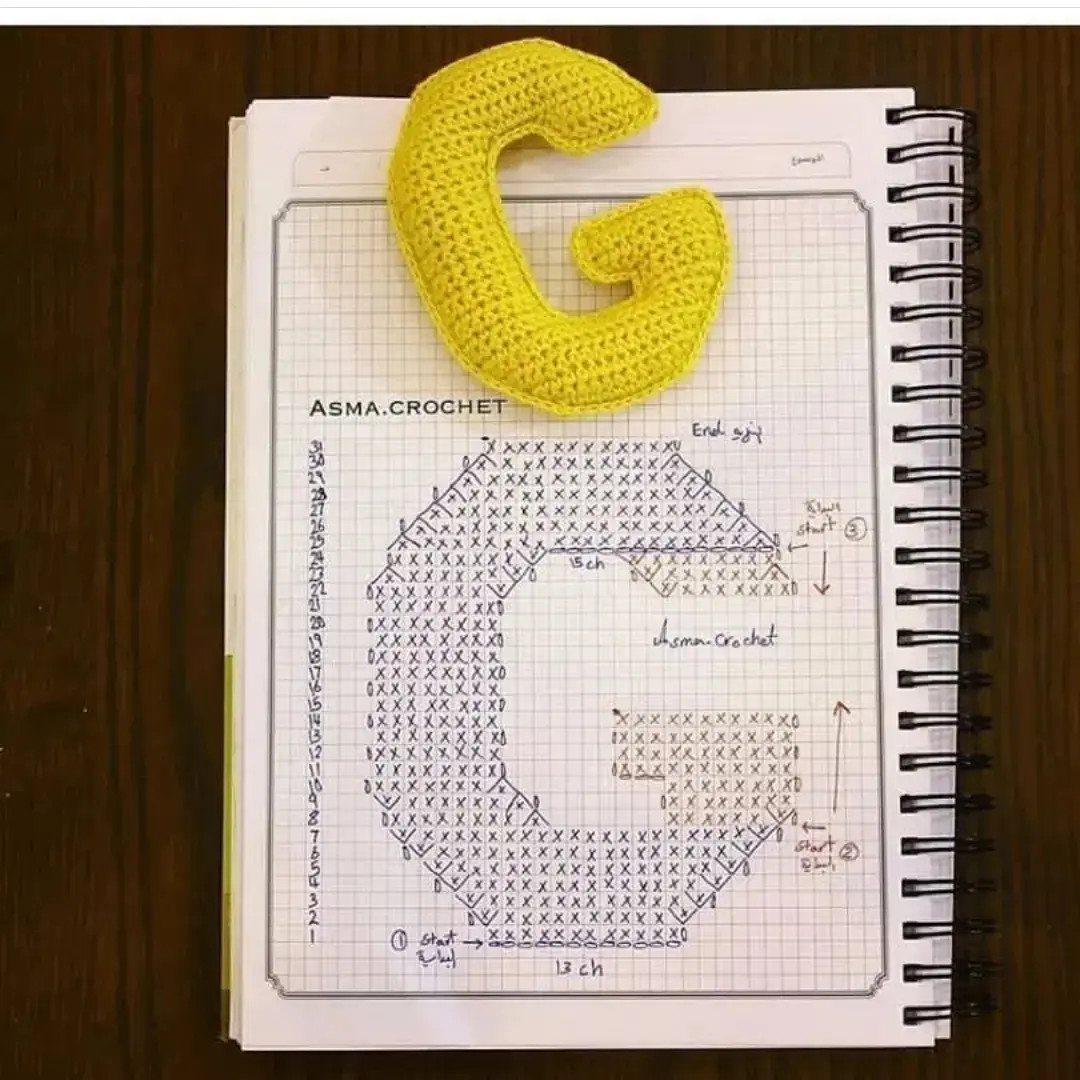 ASMA.CROCHET
End نهاية
31
30
29
28
27
26
25
24
23
22
21
20
19
18
17
16
15
14
13
12
11
10
9
8
7
6
5
4
3
2
1
بداية
start ③
15 ch
Asma.crochet
start ②
بداية
① start
بداية
13 ch